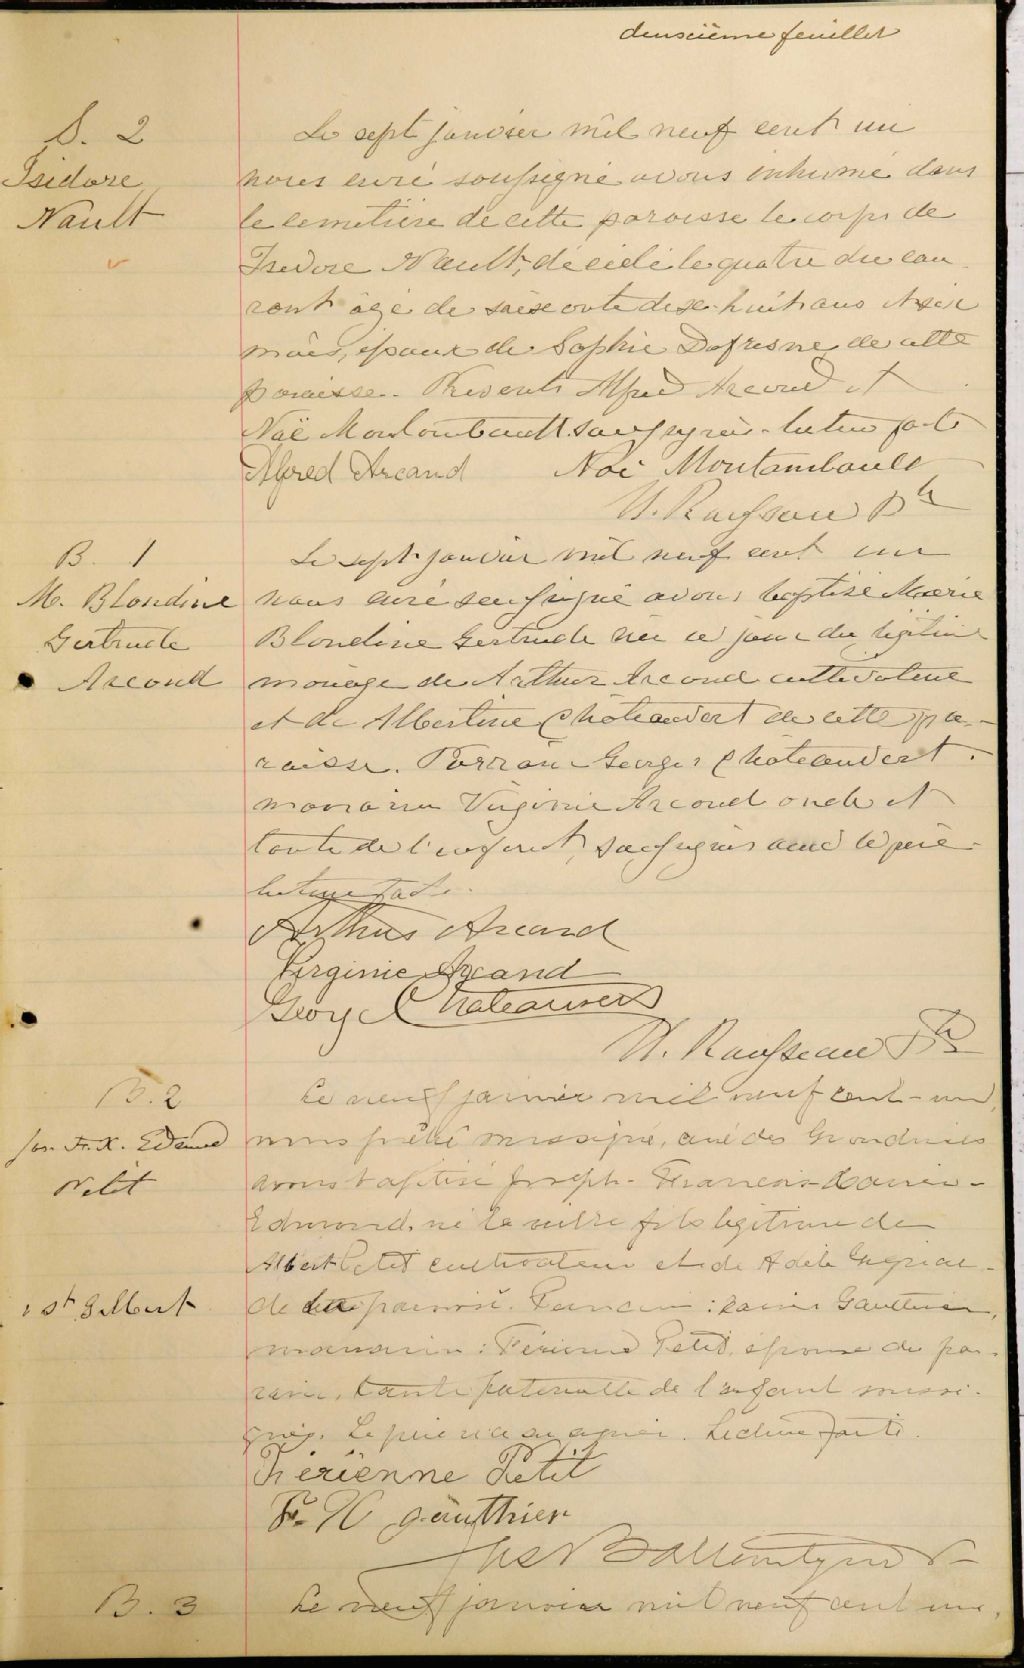 deuxième feuillet
S. 2
Isidore
Nault
Le sept janvier mil neuf cent un
nous curé soussigné avons inhumé dans
le cemetière de cette paroisse le corps de
Isidore Nault, décédé le quatre du cou
rant âgé de soixante dix-huit ans et six
mois, époux de Sophie Dufresne de cette
paroisse. Présents Alfred Arcand et
Noë Montambault soussignés. lecture faite
Alfred Arcand Noë Montambault
U. Rousseau Ptr
B. 1
M. Blandine
Gertrude
Arcand
Le sept janvier mil neuf cent un
nous curé soussigné avons baptisé Marie
Blandine Gertrude née ce jour du légitime
mariage de Arthur Arcand cultivateur
et de Albertine Châteauvert de cette pa-
roisse. Parrain Georges Châteauvert.
marraine Virginie Arcand oncle et
tante de l'enfant, soussignés avec le père.
lecture faite.
Arthur Arcand
Virginie Arcand
George Chateauvert
U. Rousseau Ptr
B. 2
Jos. F. X. Edmond
Petit
St Gilbert
Le neuf janvier mil neuf cent-un,
nous prêtre soussigné, curé des Grondines
avons baptisé Joseph-François-Xavier-
Edmond, né la veille fils légitime de
Albert Petit cultivateur et de Adèle
de paroisse. Parrain: Xavier Gauthier,
marraine: Férienne Petit, épouse du par-
rain, tante paternelle de l'enfant soussi-
gnés. Le père n'a su signer. Lecture faite.
Férienne Petit
F. X gauthier
Jos Ballantyne P
B. 3
Le neuf janvier mil neuf cent un,